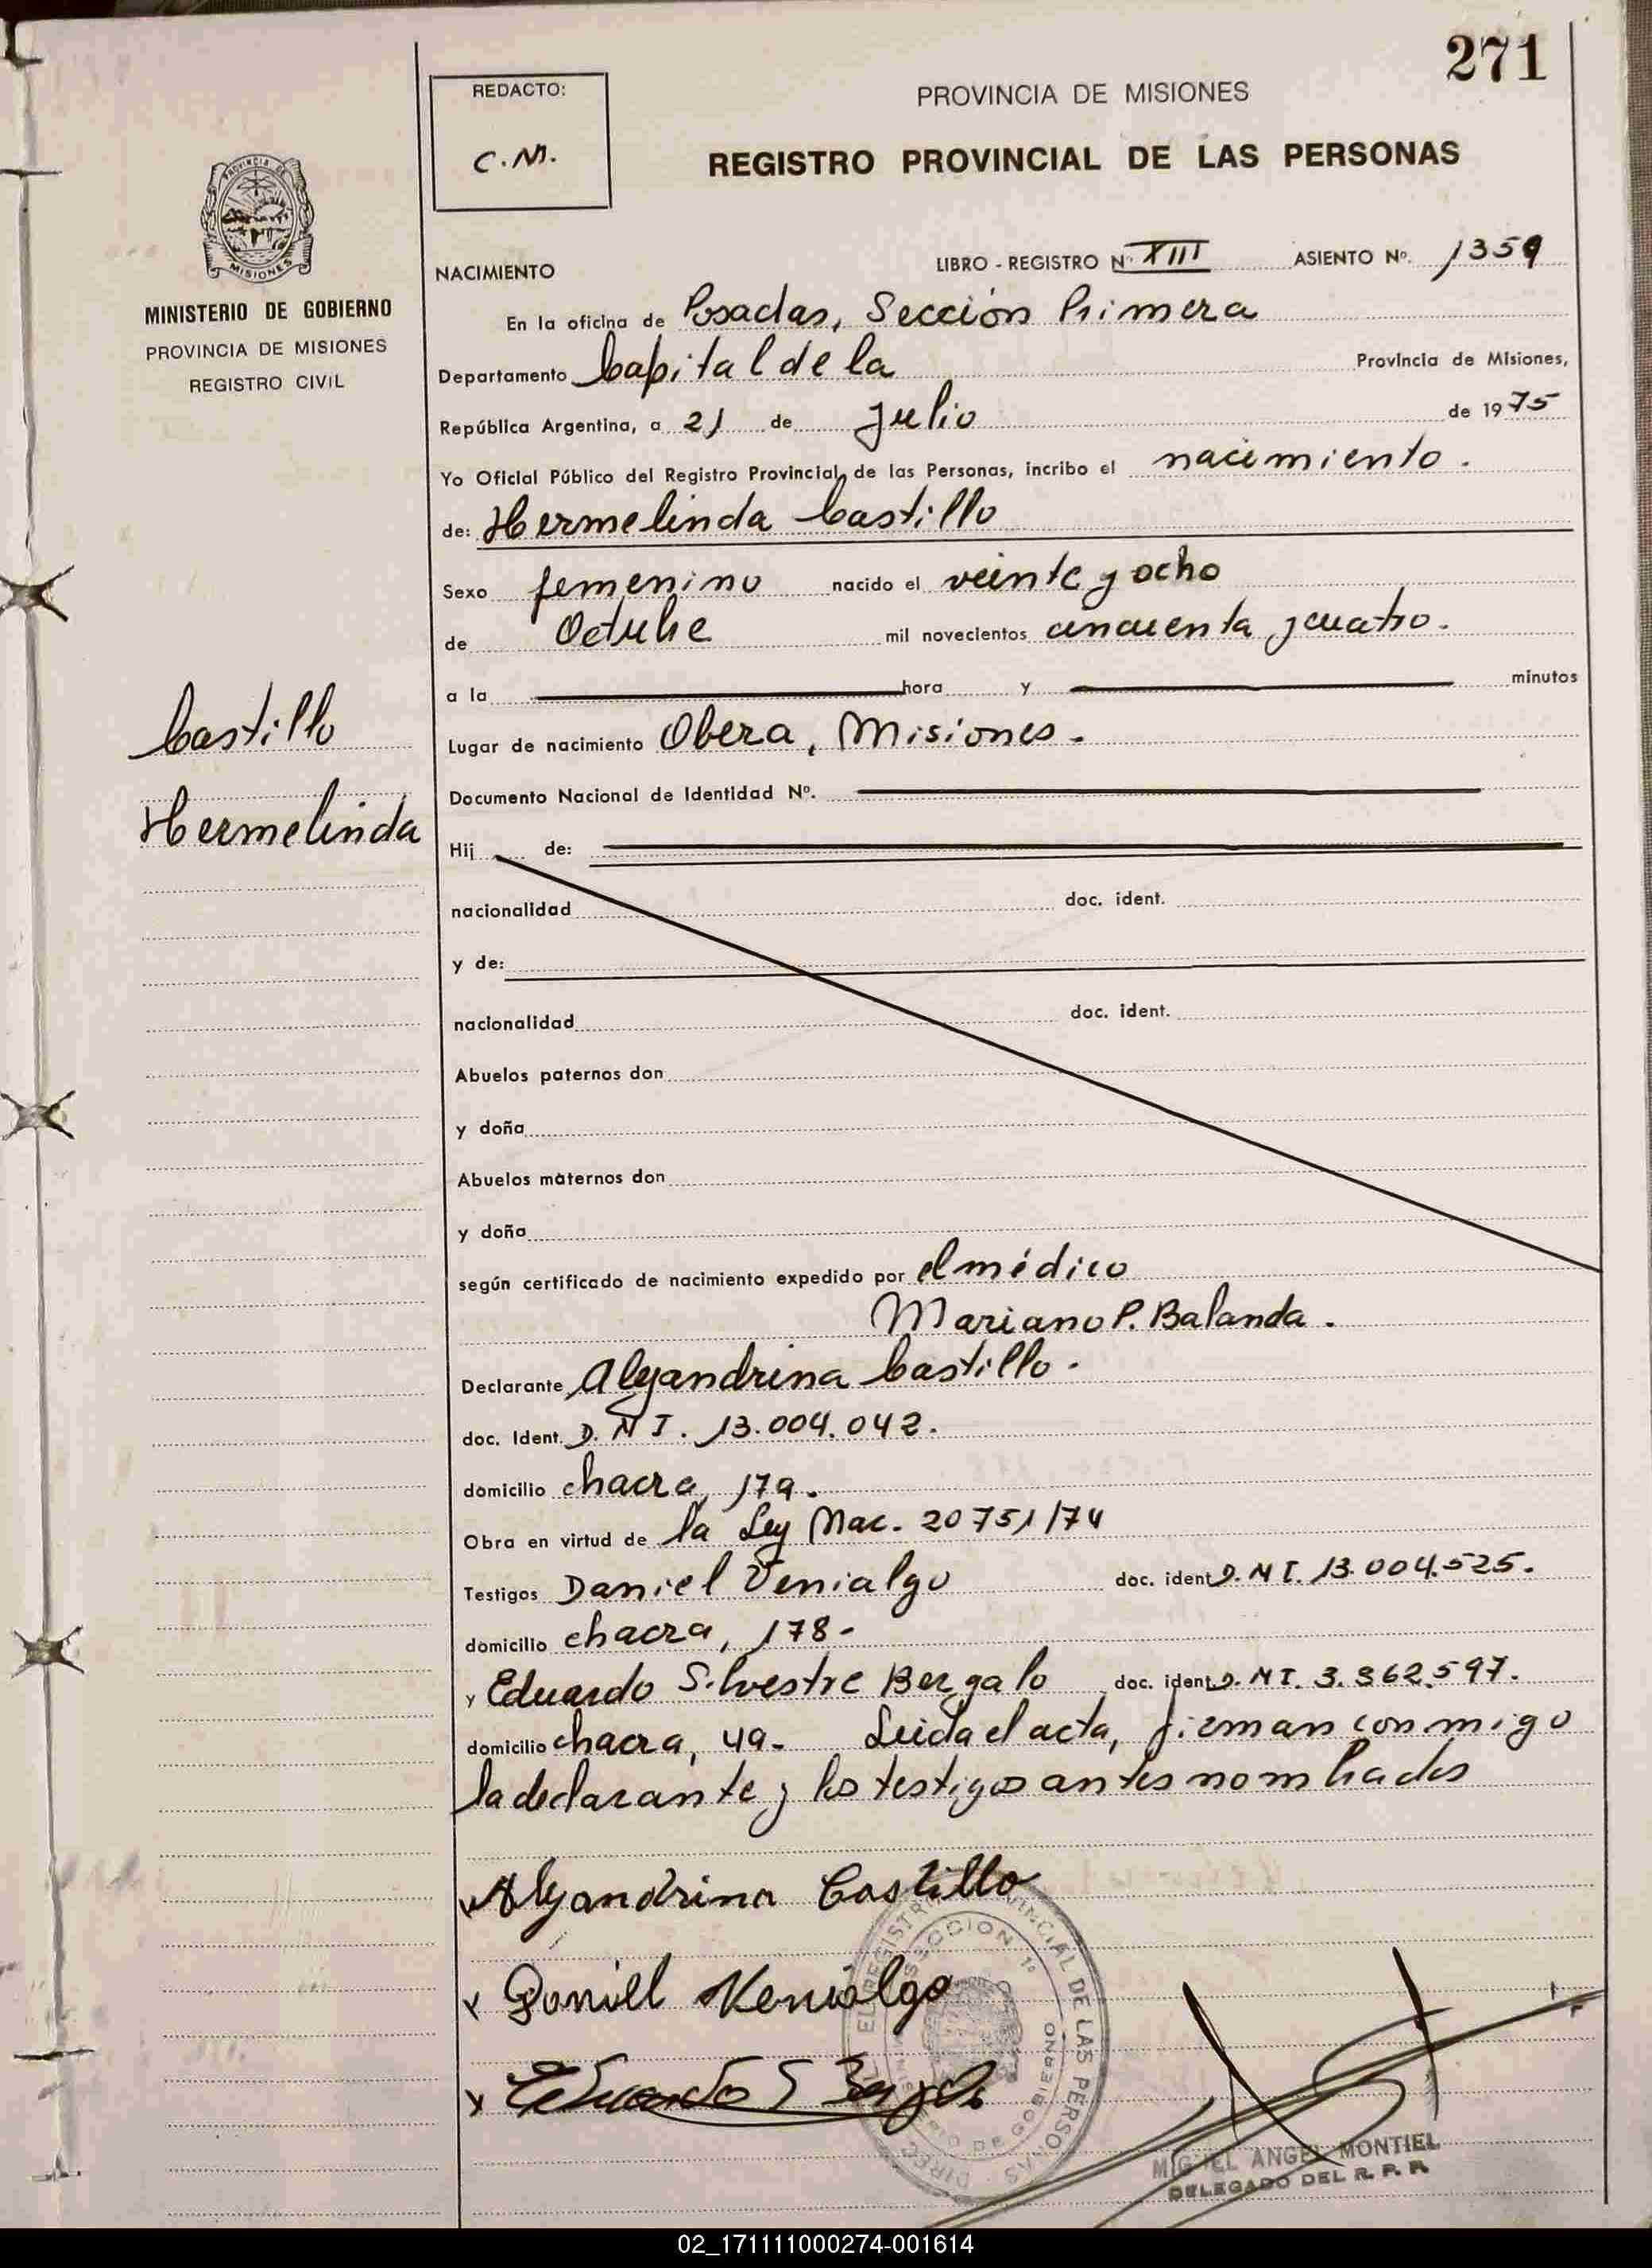 271
REDACTO:
C.M.
PROVINCIA DE MISIONES
REGISTRO PROVINCIAL DE LAS PERSONAS
PROVINCIA DE
MISIONES
MINISTERIO DE GOBIERNO
PROVINCIA DE MISIONES
REGISTRO CIVIL
NACIMIENTO
LIBRO - REGISTRO Nº XIII ASIENTO Nº. 1359
En la oficina de Posadas, Sección Primera
Departamento Capital de la Provincia de Misiones,
República Argentina, a 21 de Julio de 1975
Yo Oficial Público del Registro Provincial de las Personas, incribo el nacimiento.
de: Hermelinda Castillo
Sexo femenino nacido el veinte y ocho
de Octubre mil novecientos cincuenta y cuatro.
a la hora y minutos
Castillo
Lugar de nacimiento Obera, Misiones.
Documento Nacional de Identidad Nº.
Hermelinda
Hij de:
nacionalidad doc. ident.
y de:
nacionalidad doc. ident.
Abuelos paternos don
y doña
Abuelos maternos don
y doña
según certificado de nacimiento expedido por el médico
Mariano P. Balanda.
Declarante Alejandrina Castillo.
doc. Ident. D.N I. 13.004.042.
domicilio chacra, 179.
Obra en virtud de la Ley Nac. 20751/74
Testigos Daniel Venialgo doc. ident D.N I. 13.004.525.
domicilio chacra, 178-
y Eduardo Silvestre Bergalo doc. ident D.N I. 3.362.597.
domicilio chacra, 49- Leida el acta, firman conmigo
la declarante y los testigos antes nombrados
Alejandrina Castillo
Daniel Venialgo
Eduardo S
DIREC. REGISTRO PROVINCIAL DE LAS PERSONAS
SECCION 1º
MINISTERIO DE GOBIERNO
MIGUEL ANGEL MONTIEL
DELEGADO DEL R. P. P.
02_171111000274-001614